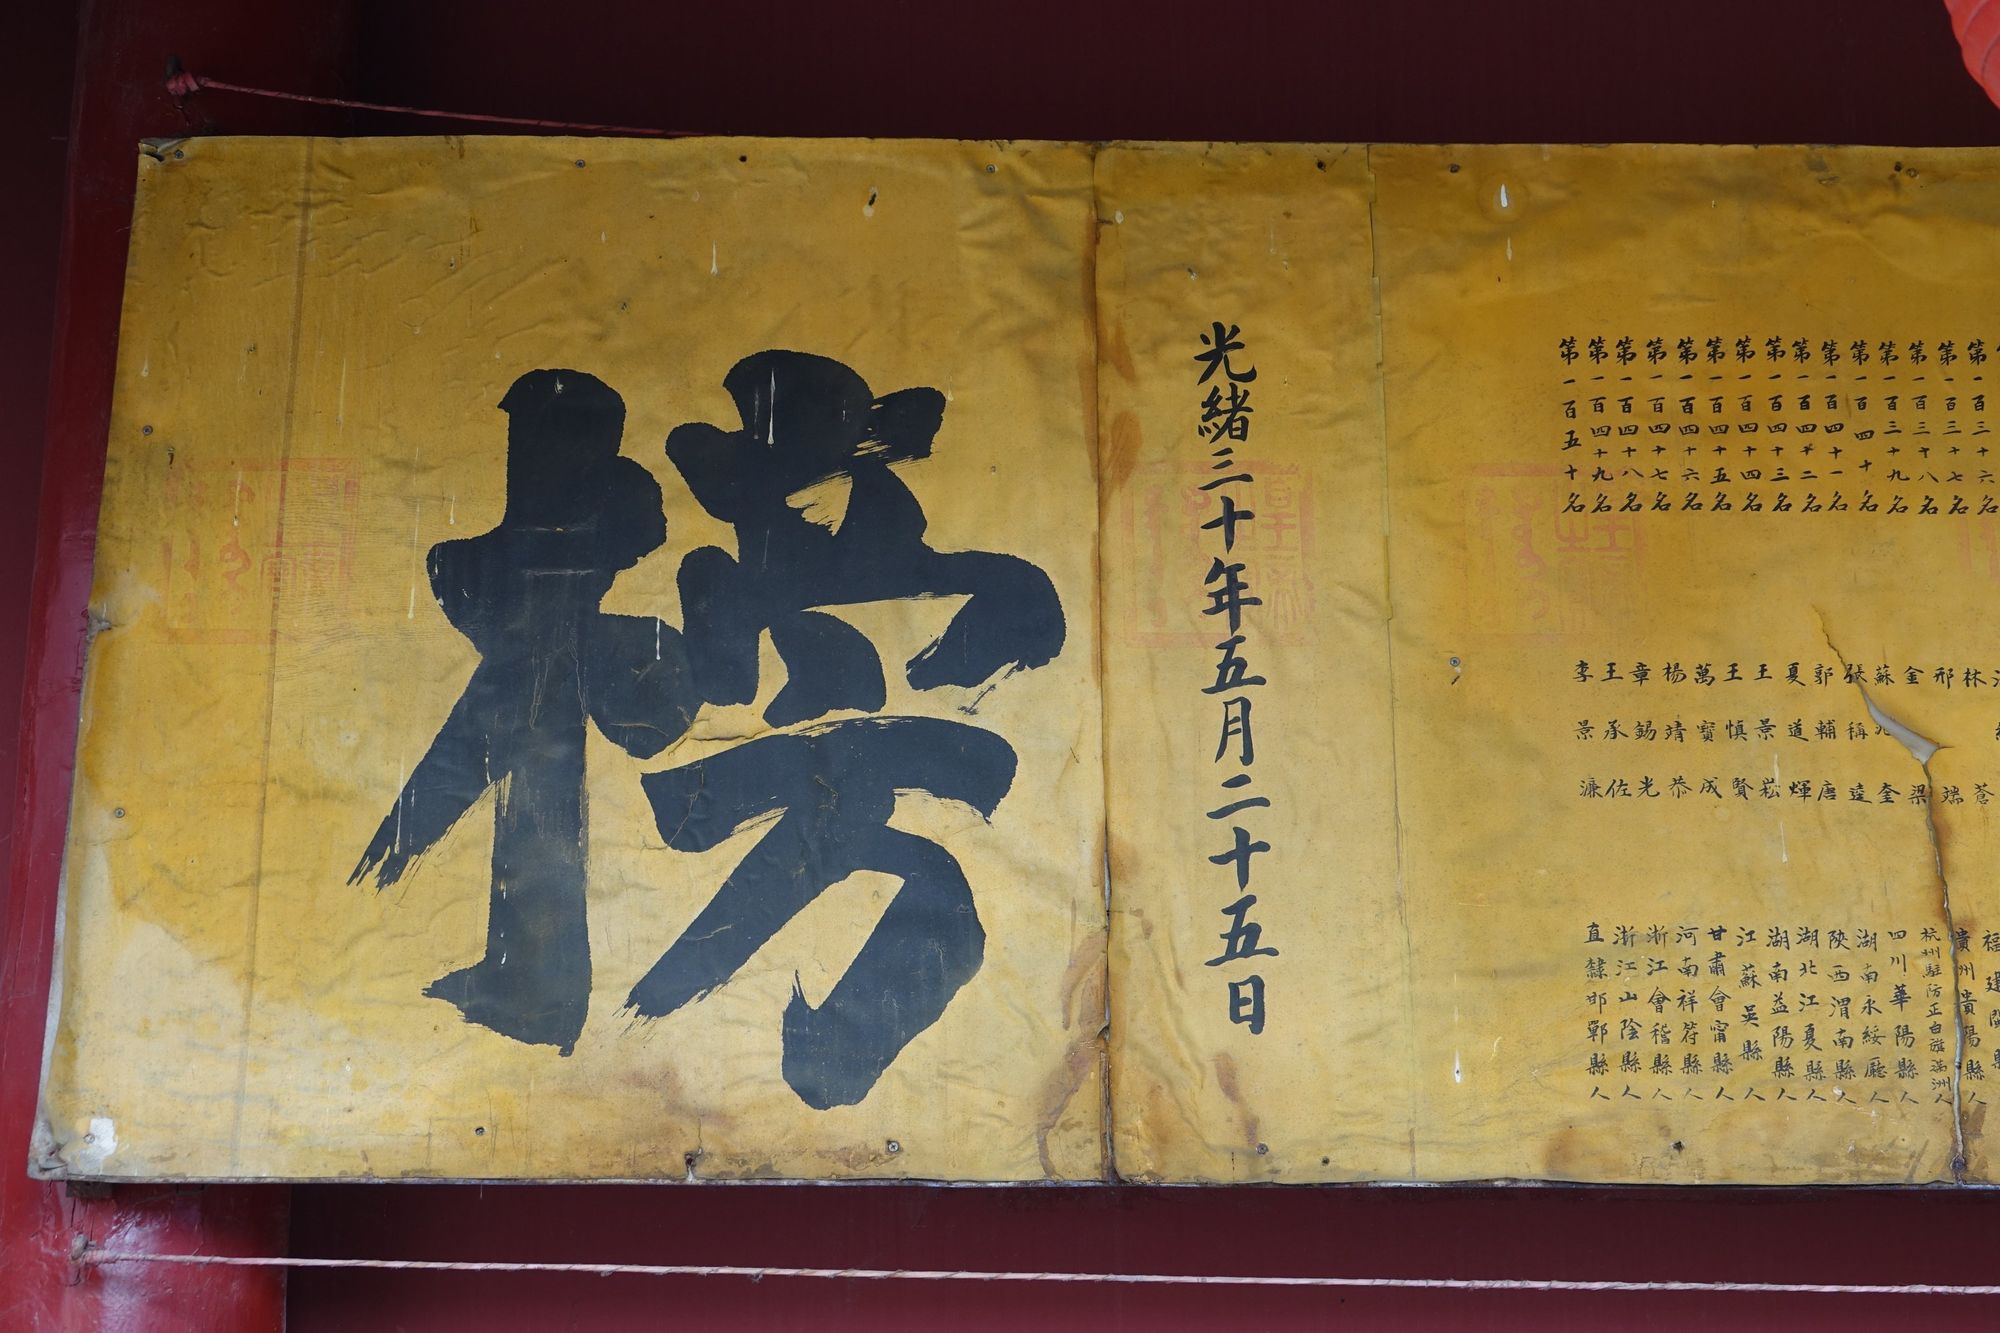 第一百三十六名
第一百三十七名 林蒼 福建閩縣
第一百三十八名 邢端 貴州貴陽縣人
第一百三十九名 金梁 杭州駐防正白旗滿洲人
第一百四十名 蘇兆奎 四川華陽縣人
第一百四十一名 張稱逵 湖南永綏廳人
第一百四十二名 郭輔唐 陝西渭南縣人
第一百四十三名 夏道輝 湖北江夏縣人
第一百四十四名 王景崧 湖南益陽縣人
第一百四十五名 王慎賢 江蘇吳縣人
第一百四十六名 萬寶成 甘肅會甯縣人
第一百四十七名 楊靖恭 河南祥符縣人
第一百四十八名 章錫光 浙江會稽縣人
第一百四十九名 王承佐 浙江山陰縣人
第一百五十名 李景濂 直隸邯鄲縣人
光緒三十年五月二十五日
榜